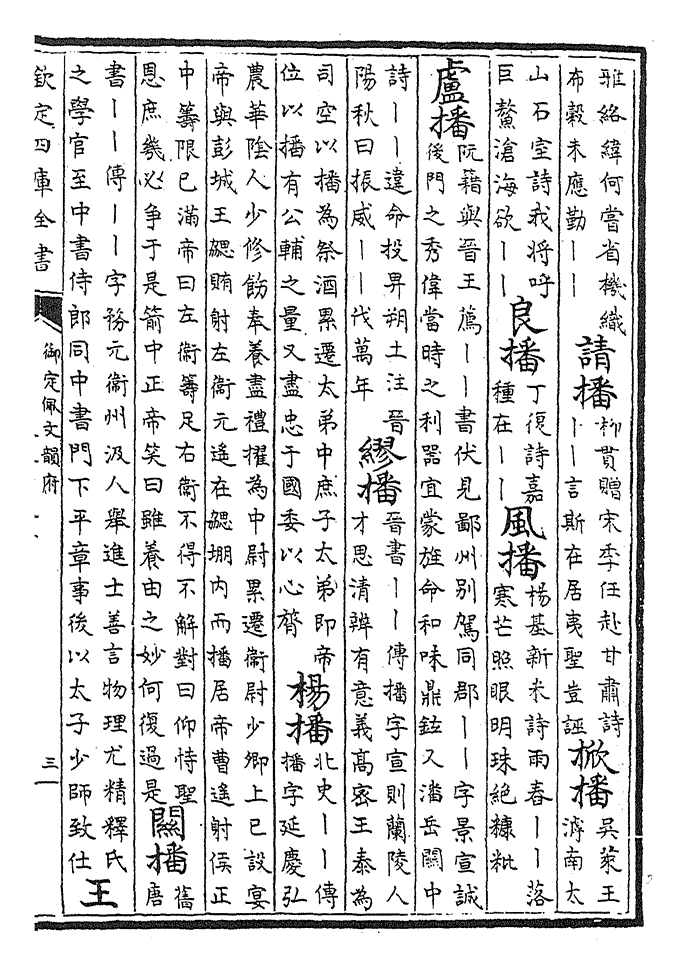 雅絡緯何當省機織
布穀未應勤丨丨
請播
柳貫贈宋季任赴甘肅詩
丨丨言斯在居夷聖豈誣
掀播
吳萊王
南太
山石室詩我將呼
巨鰲滄海欲丨丨
良播
丁復詩嘉
種在丨丨
風播
楊基新米詩雨春丨丨落
寒芒照眼明珠絶糠粃
盧播
阮籍與晉王薦丨丨書伏見鄙州别駕同郡丨丨字景宣誠
後門之秀偉當時之利器宜蒙旌命和味鼎鉉又潘岳關中
詩丨丨違命投畀朔土注晉
陽秋曰振威丨丨伐萬年
繆播
晉書丨丨傳播字宣則蘭陵人
才思清辨有意義高密王泰為
司空以播為祭酒累遷太弟中庶子太弟即帝
位以播有公輔之量又盡忠于國委以心膂
楊播
北史丨丨傳
播字延慶弘
農華陰人少修飭奉養盡禮擢為中尉累遷衞尉少卿上已設宴
帝與彭城王勰賭射左衞元遙在勰堋内而播居帝曹遙射侯正
中籌限已滿帝曰左衞籌足右衞不得不解對曰仰恃聖
恩庶幾必争于是箭中正帝笑曰雖養由之妙何復過是
關播
舊
唐
書丨丨傳丨丨字務元衞州汲人舉進士善言物理尤精釋氏
之學官至中書侍郎同中書門下平章事後以太子少師致仕
王
欽定四庫全書
御定佩文韻府
三